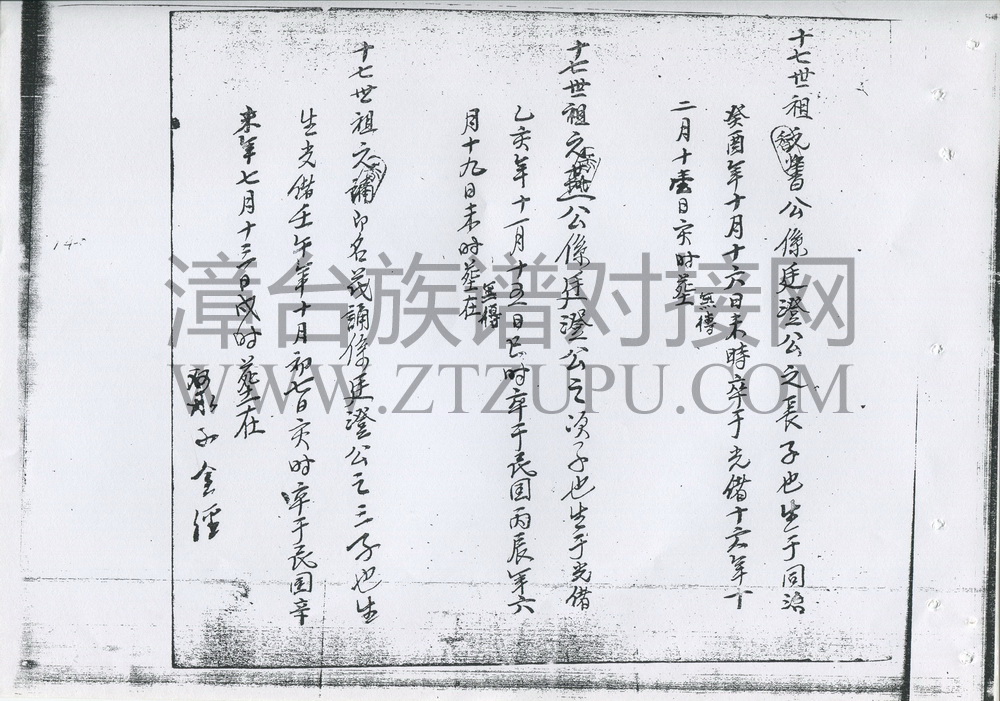 十七世祖 書公係廷澄公之長子也生于同治
癸酉年十月十六日未時卒于光緒十六年十
二月十壹日亥时塟
無傳
十七世祖元 公係廷澄公之次子也生于光緒
乙亥年十一月十五日巳时卒于民国丙辰年六
月十九日未时塟在
無傳
十七世祖元誦印名茂誦係廷澄公之三子也生
生光緒壬午年十月初七日亥时卒于民国辛
未年七月十三日戍时塟在
子金經
漳台族谱对接网
WWW.ZTZUPU.COM